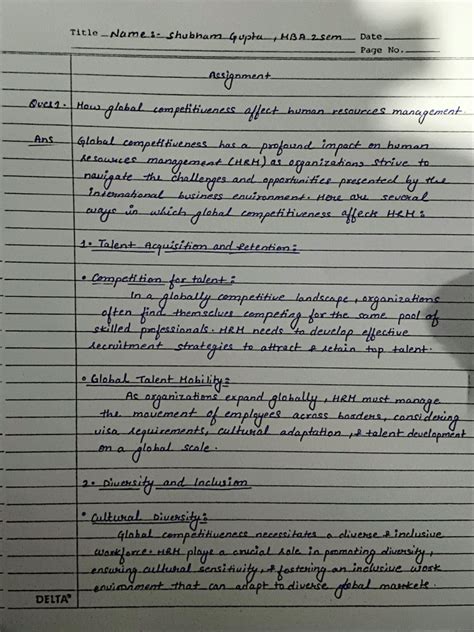 Title Name:- Shubham Gupta, MBA 2sem Date
Page No.
Assignment
Ques1. How global competitiveness affect human resources management.
Ans Global competitiveness has a profound impact on human
resources management (HRM) as organizations strive to
navigate the challenges and opportunities presented by the
international business environment. Here are several
ways in which global competitiveness affects HRM:
1. Talent Acquisition and Retention:
• Competition for talent:
In a globally competitive landscape, organizations
often find themselves competing for the same pool of
skilled professionals. HRM needs to develop effective
recruitment strategies to attract & retain top talent.
• Global Talent Mobility:
As organizations expand globally, HRM must manage
the movement of employees across borders, considering
visa requirements, cultural adaptation, & talent development
on a global scale.
2. Diversity and Inclusion
• Cultural Diversity:
Global competitiveness necessitates a diverse & inclusive
workforce. HRM plays a crucial role in promoting diversity,
ensuring cultural sensitivity, & fostering an inclusive work
environment that can adapt to diverse global markets.
DELTA